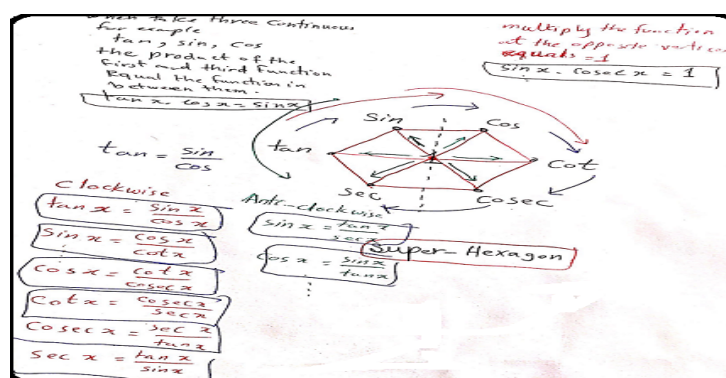 when take three continuous
for example
tan, sin, cos
the product of the
first and third function
Equal the function in
between them.
tan x . cos x = sin x
multiply the function
at the opposite vertices
equals = 1
sin x . cosec x = 1
Sin
Cos
tan
Cot
sec
Cosec
tan = sin/cos
Clockwise
tan x = sin x/cos x
Sin x = cos x/cot x
Cos x = cot x/cosec x
Cot x = cosec x/sec x
Cosec x = sec x/tan x
Sec x = tan x/sin x
Anti-clockwise
sin x = tan x/sec x
cos x = sin x/tan x
Super-Hexagon